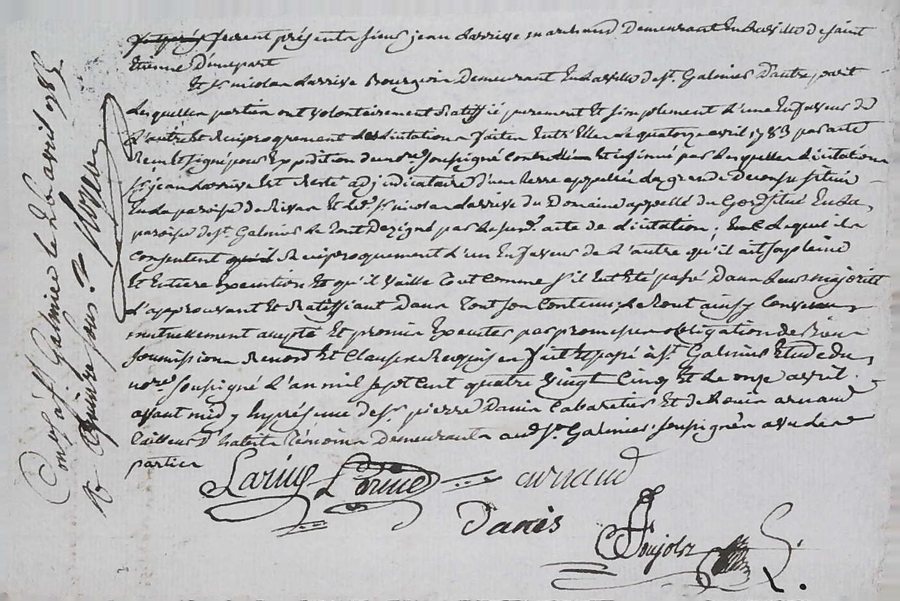 furent présents sieur jean Larrive marchand Demeurant En la ville de saint
Etienne D'une part
Et sr. nicolas Larrive Bourgeois Demeurant En la ville de st. Galmier D'autre part
Lesquelles parties ont volontairement Ratiffié purement Et simplement L'une En faveur de
L'autre Et Reciproquement licitations faites Entr'Elles Le quatorze avril 1783 par acte
Signé pour Expédition du nre. soussigné Controllé Et insinué par Lesquelles licitations
sr. jean Larrive Est Resté adjudicataire D'une terre appellée La grande Décousu située
En La paroisse de Rivas Et led. sr. nicolas Larrive du Domaine appellé du situé En La
paroisse de st. Galmier Le tout Dezigné par Le susd. acte de licitation ; En Lequel ils
Consentent Reciproquement L'un En faveur de L'autre qu'il ait son pleine
Et Entiere Execution Et qu'il vaille tout comme s'il Eut Eté passé Dans Leurs majorité
L'approuvant Et Ratiffiant Dans tout son Contenu, Le tout ainsy Convenu
mutuellement accepté Et promis Executer par promesses obligation de Biens
soumissions Renond. Et Clauses Requises fait Et passé a st. Galmier Etude du
nore. soussigné L'an mil sept cent quatre vingt Cinq Et Le onze avril
avant midy En présence de sr. pierre Danis Cabaretier Et de arnaud
tailleur D'habits témoins Demeurants aud. st. Galmier, soussignés avec les
parties
Larive Larive arnaud
Danis
Pujolz
Con. a st. Galmier le 20 avril 1785
R. quinze sous